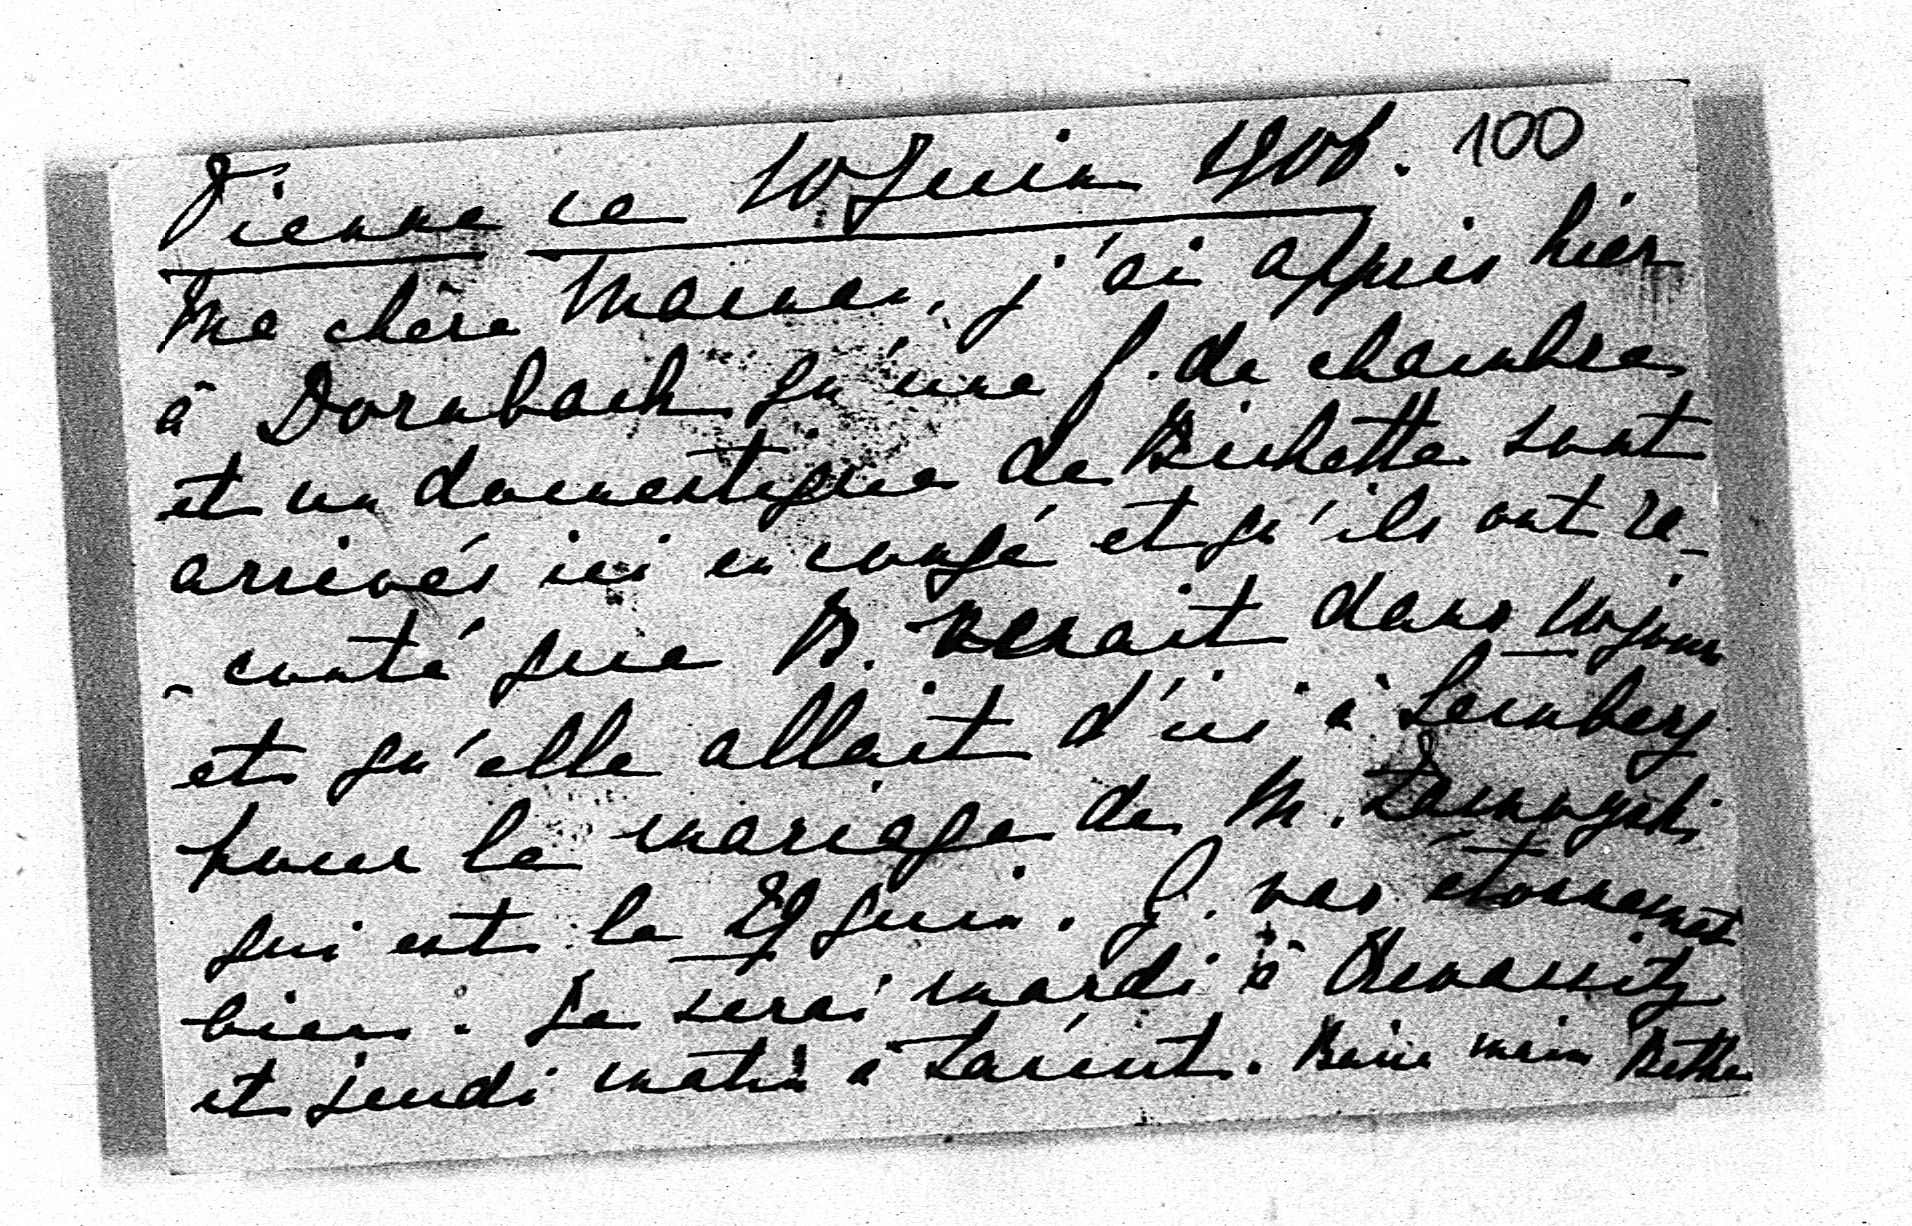 Vienne ce 10 Juin 1906. 100
Ma chère Maman, j'ai appris hier
à Dornbach qu'une f. de chambre
et un domestique de Bichette sont
arrivés ici en congé et qu'ils ont ra-
-conté que B. venait dans 10 jours
et qu'elle allait d'ici à Lemberg
pour le mariage de M. Zamoyski
qui est le 29 Juin. G. vas étonnement
bien. Je serai mardi à
et jeudi matin à . Baise main Bethe